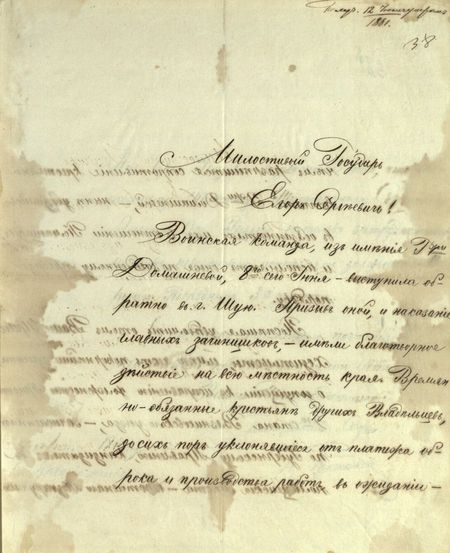 12
1861.
38
Милостивый Государь,
Егоръ Сергѣевичъ!
Воинская команда, изъ имѣнія Г-жи
Домашневой, 8го сего Іюня – выступила об-
ратно въ г. Шую. Призывъ оной, и наказаніе
главныхъ зачинщиковъ, – имѣли благотворное
дѣйствіе на всю мѣстность края. Времен-
но-обязанные крестьяне другихъ Владѣльцевъ,
до сихъ поръ уклонявшіеся отъ платежа об-
рока и производства работъ въ ожиданіи –